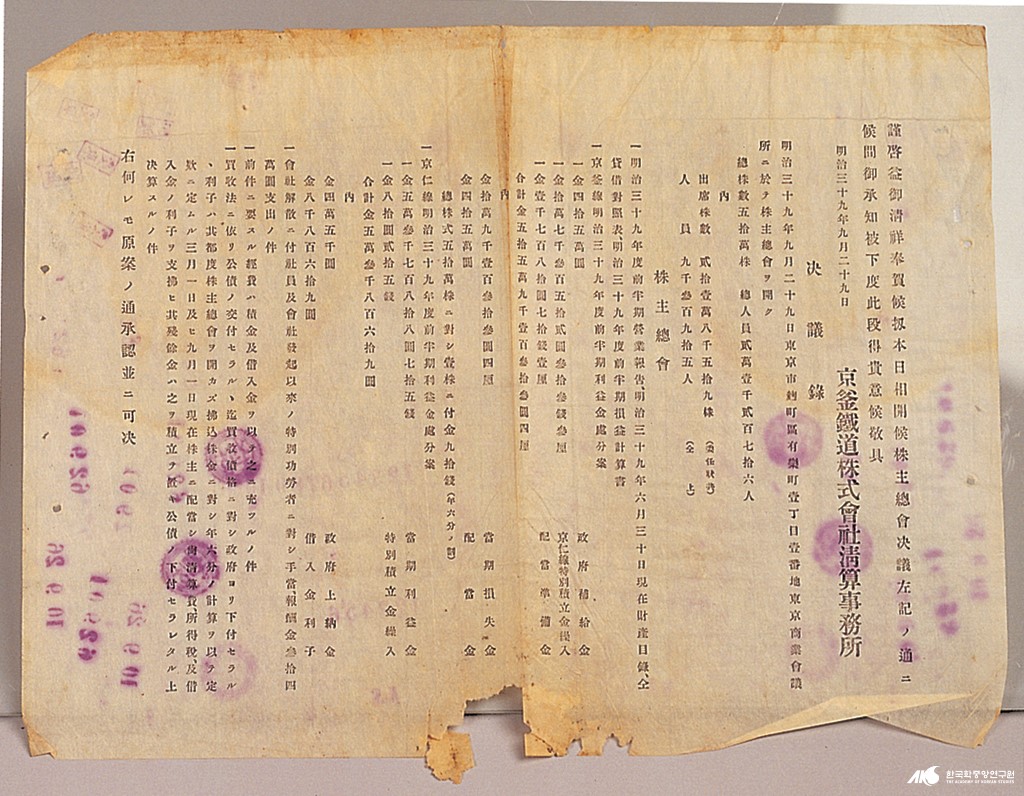 謹啓益御淸祥奉賀候扨本日相開候株主總會決議左記ノ通ニ
候間御承知被下度此段得貴意候敬具
明治三十九年九月二十九日
京釜鐵道株式會社淸算事務所
決議錄
明治三十九年九月二十九日東京市麹町區有樂町壹丁目壹番地東京商業會議
所ニ於テ株主總會ヲ開ク
總株數五拾萬株 總人員貳萬壹千貳百七拾六人
內
出席株數 貳拾壹萬八千五拾九株 (委任狀共)
人員 九千參百九拾五人 (仝上)
株主總會
一明治三十九年度前半期營業報吿、明治三十九年六月三十日現在財產目錄、仝
貸借對照表明治三十九年度前半期損益計算書
一京釜線明治三十九年度前半期利益金處分案
一金四拾五萬圓 政府補給金
一金拾萬七千參百五拾貳圓參錢參厘 京仁線特別積立金繰入
一金壹千七百八拾圓七拾錢壹厘 配當準備金
合計金五拾五萬九千壹百參拾參圓四厘
內
金拾萬九千壹百參拾參圓四厘 當期損失金
金四拾五萬圓 配當金
總株式五拾萬株ニ對シ壹株ニ付金九拾錢(年六分ノ割)
一京仁線明治三十九年度前半期利益金處分案
一金五萬參千七百八拾八圓七拾五錢 當期利益金
一金八拾圓貳拾五錢 特別積立金繰入
合計金五萬參千八百六拾九圓
內
金四萬五千圓 政府上納金
金八千八百六拾九圓 借入金利子
一會社解散ニ付社員及會社發起以來ノ特別功勞者ニ對シ手當報酬金參拾四
萬圓支出ノ件
一前件ニ要スル經費ハ積金及借入金ヲ以テ之ニ充ツルノ件
一買收法ニ依リ公債ノ交付セラルヽ迄買收價格ニ對シ政府ヨリ下付セラル
ヽ利子ハ其都度株主總會ヲ開カズ拂込株金ニ對シ年六分ノ計算ヲ以テ定
款ニ定ムル三月一日及ヒ九月一日現在株主ニ配當シ尙淸算費、所得稅及借
入金ノ利子ヲ支拂ヒ其殘餘金ハ之ヲ積立テ置キ公債ノ下付セラレタル上
決算スルノ件
右何レモ原案ノ通承認並ニ可決
한국학중앙연구원
THE ACADEMY OF KOREAN STUDIES